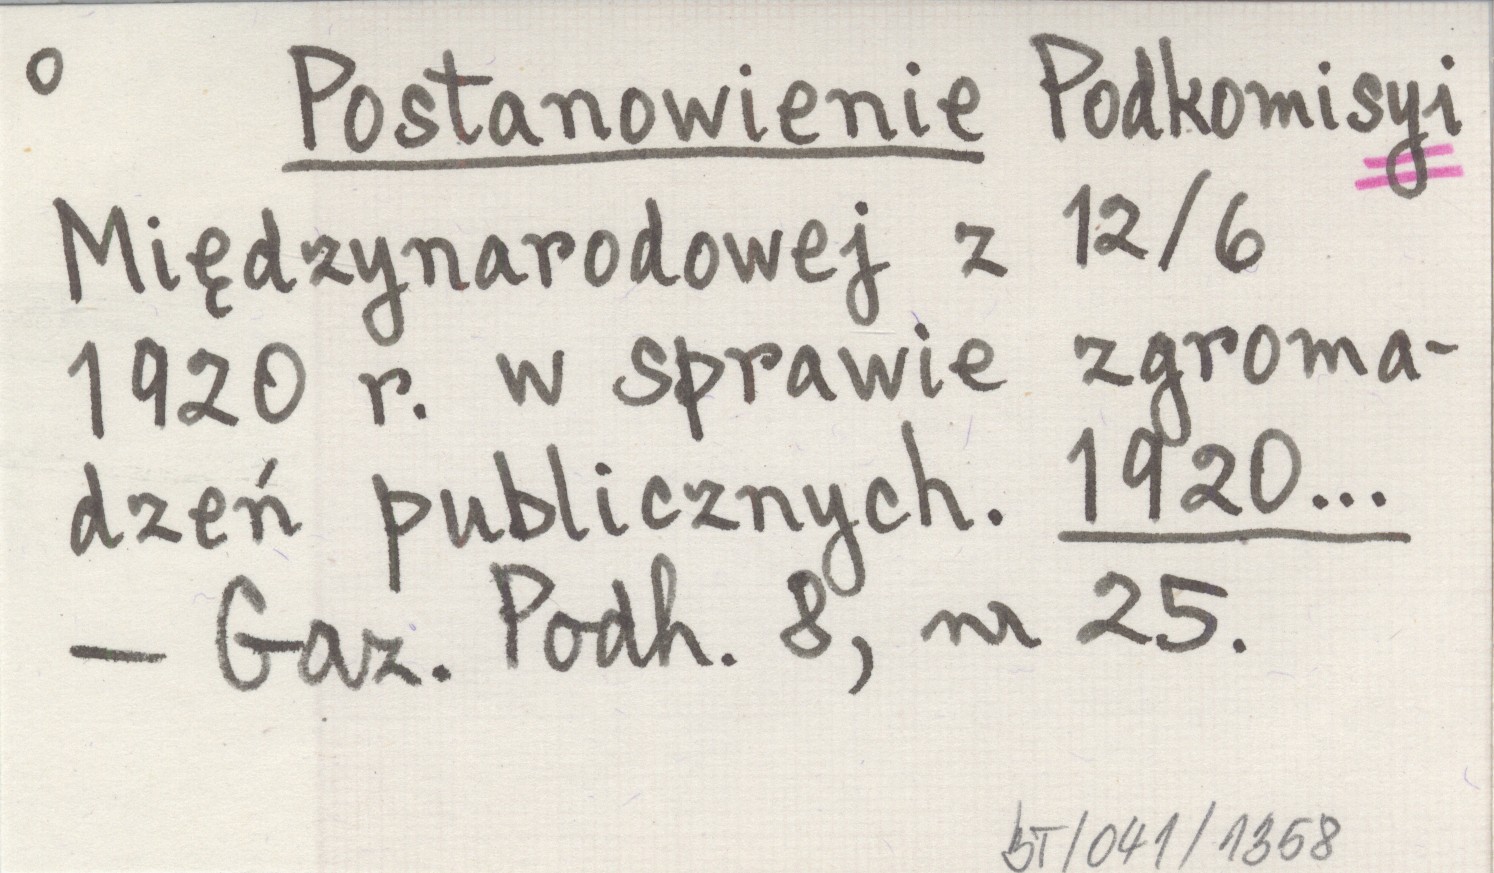 o Postanowienie Podkomisyi
Międzynarodowej z 12/6
1920 r. w sprawie zgroma-
dzeń publicznych. 1920...
— Gaz. Podh. 8, nr 25.
BT/041/1368